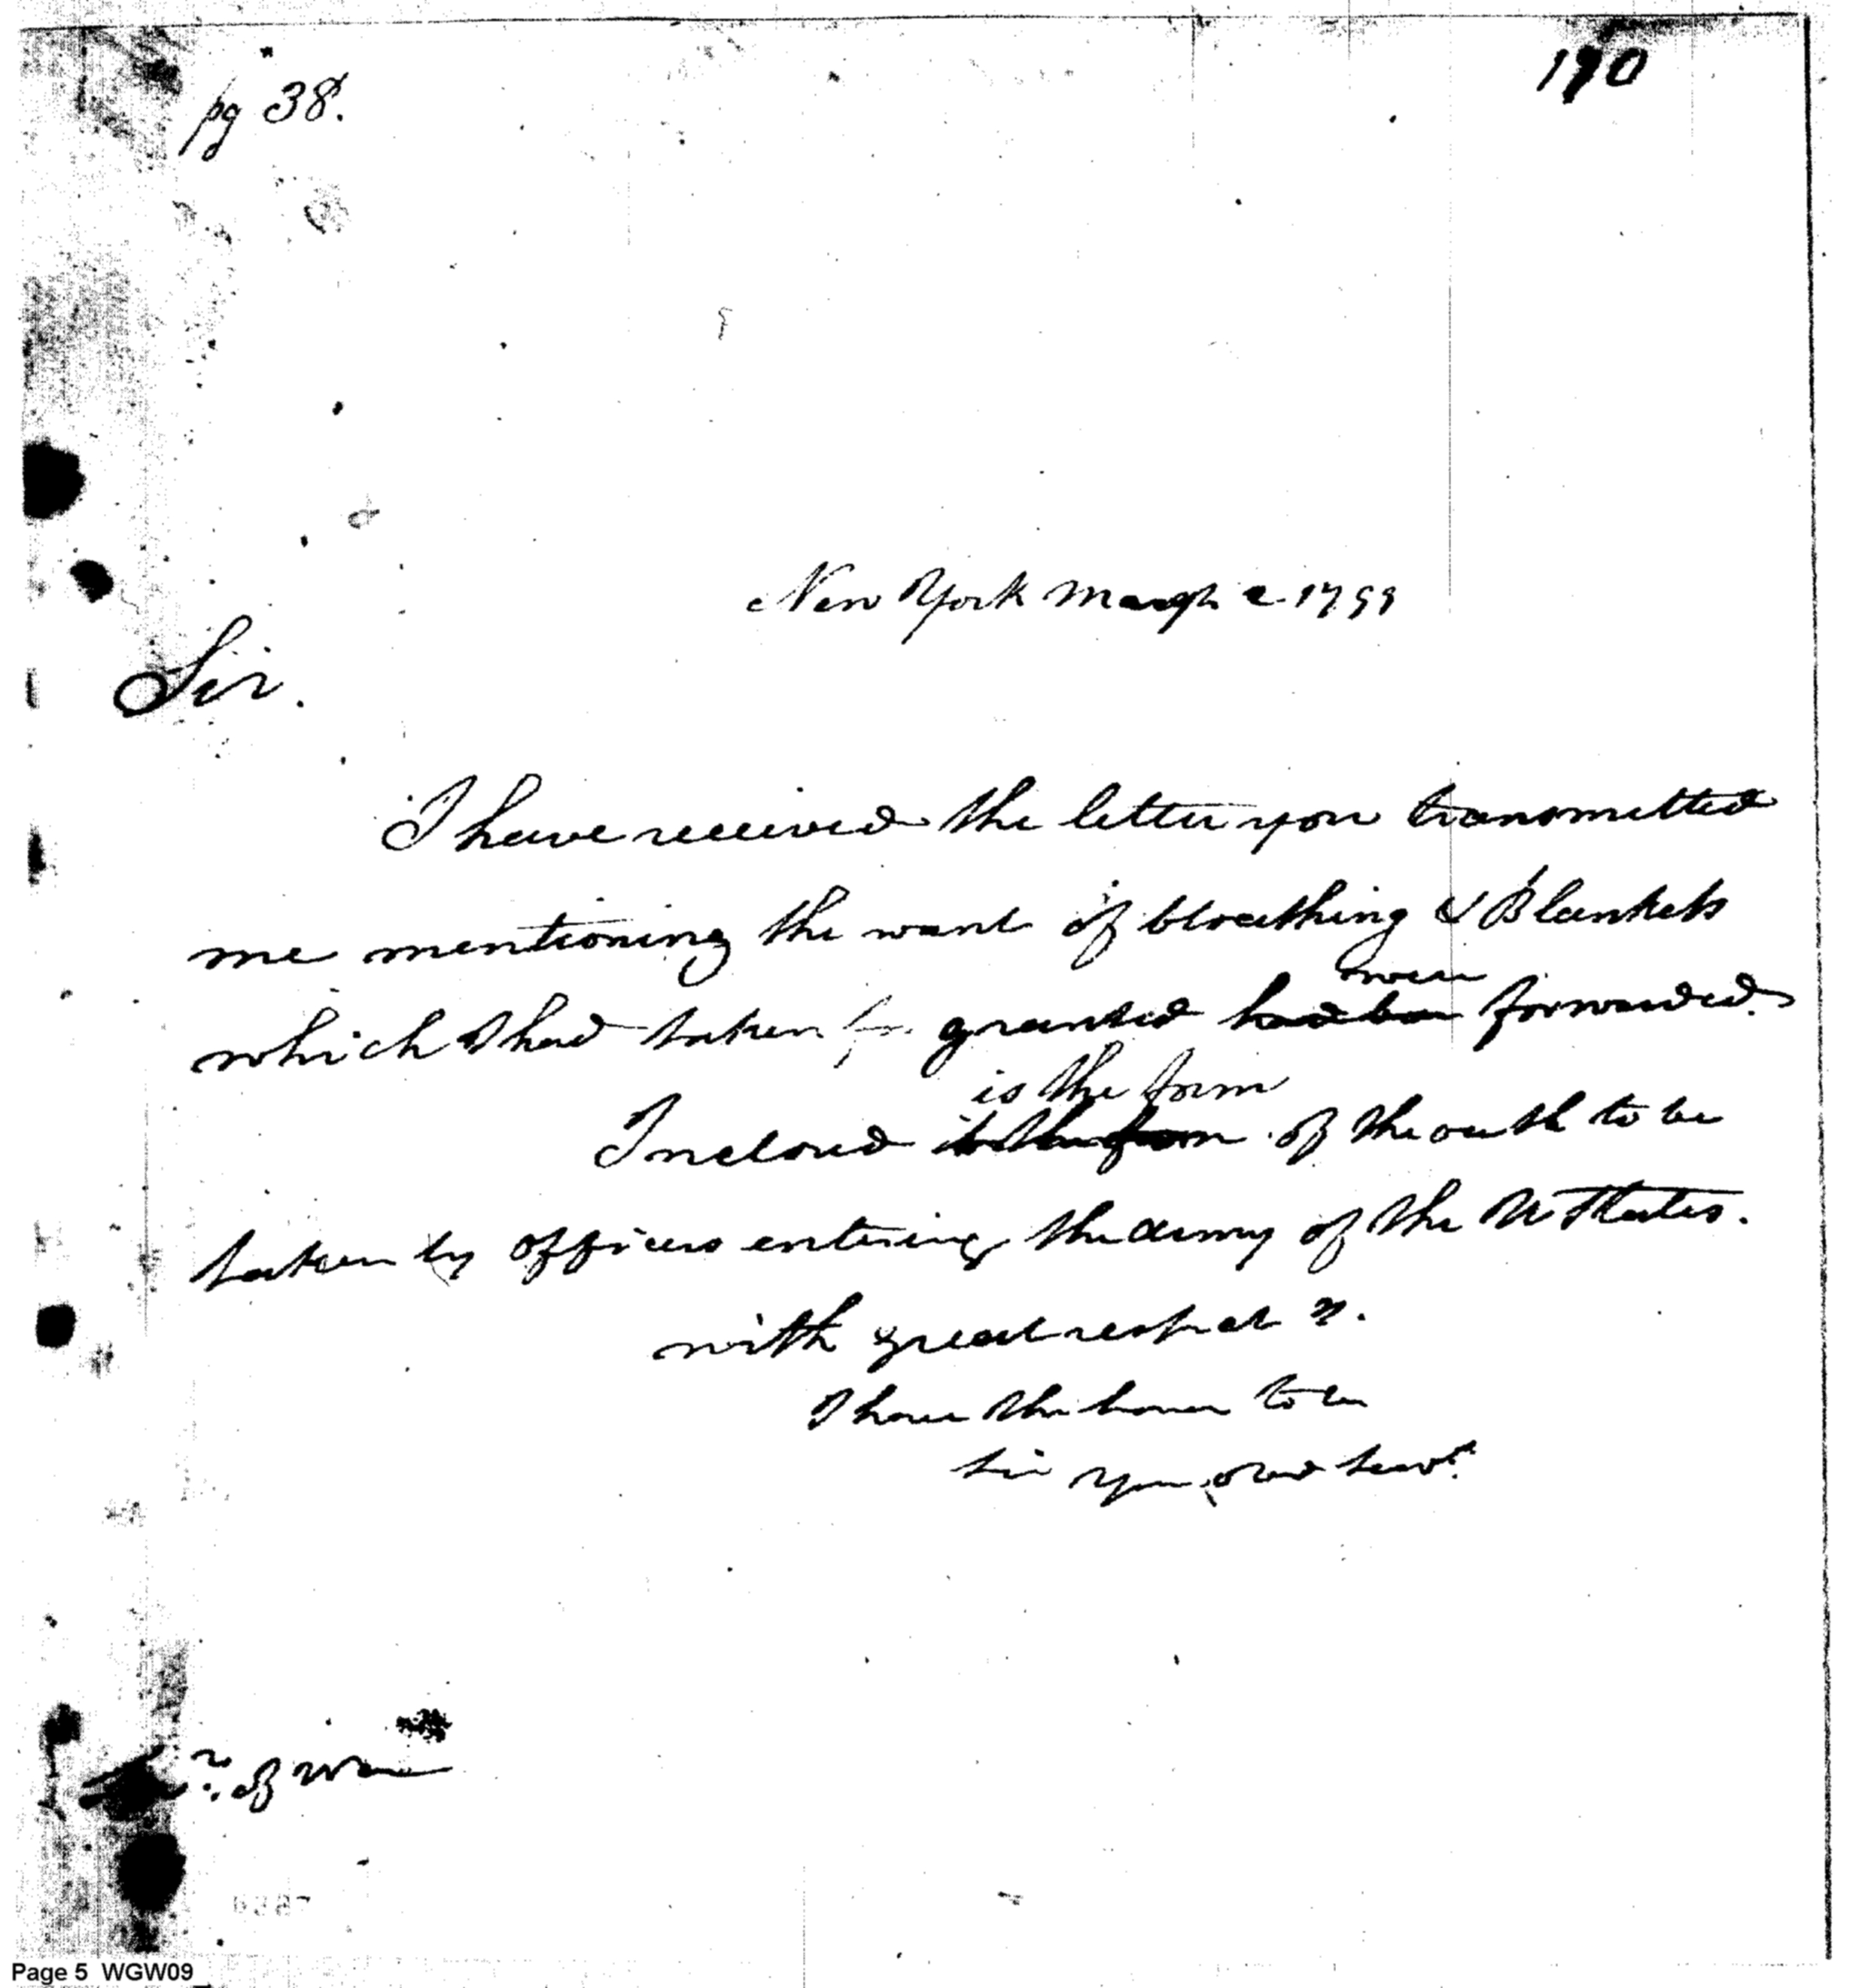 pg 38.
190
New York March 2 1799
Sir.
I have received the letter you transmitted
me mentioning the want of cloathing & Blankets
were
which I had taken for granted had been forwarded.
is the form
Inclosed is the form of the oath to be
taken by officers entering the army of the U States.
with great respect
I have the honor to be
Sir Your obed servt.
of War
Page 5 WGW09_